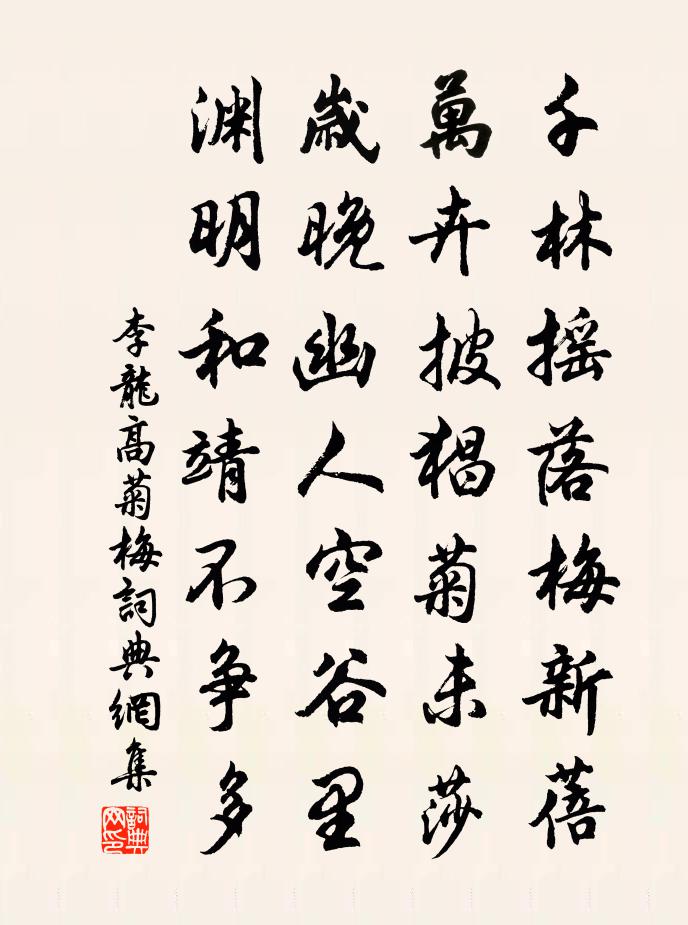 千林摇落梅新蓓
萬卉披猖菊未莎
歲晚幽人空谷里
渊明和靖不争多
李龍高菊梅詞典網集
詞典網印